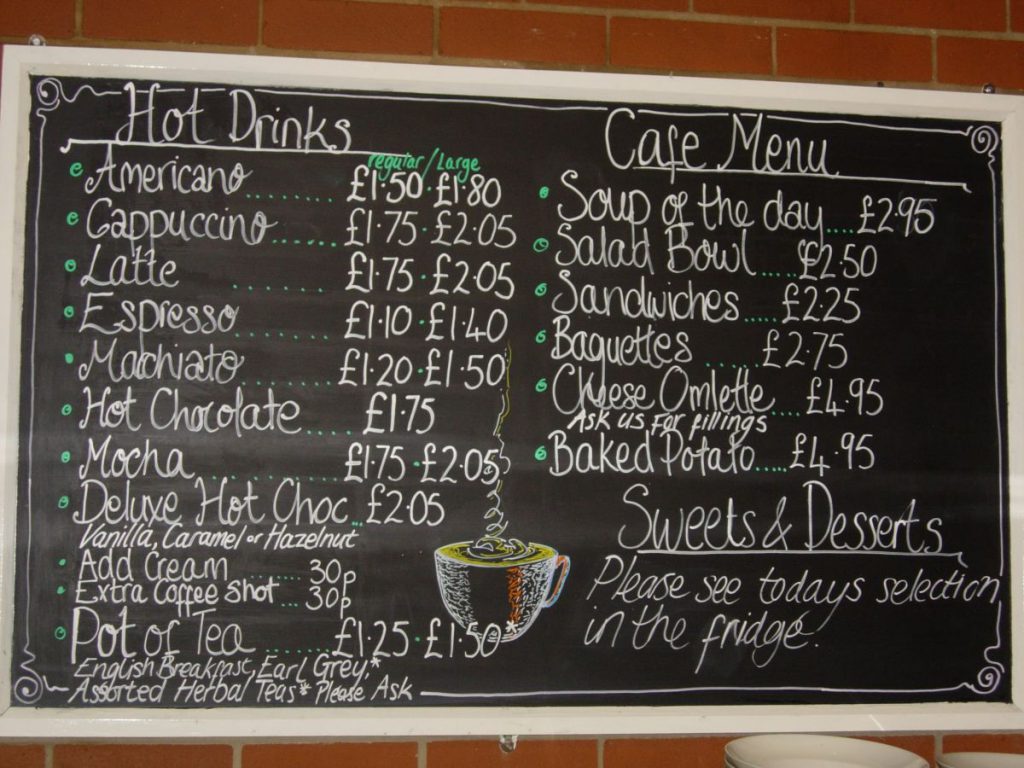 Hot Drinks
regular/Large
Americano........ £1.50 · £1.80
Cappuccino....... £1.75 · £2.05
Latte ....... £1.75 · £2.05
Espresso........ £1.10 · £1.40
Machiato........ £1.20 · £1.50
Hot Chocolate..... £1.75
Mocha........ £1.75 · £2.05
Deluxe Hot Choc... £2.05
Vanilla, Caramel or Hazelnut
Add Cream........ 30p
Extra Coffee Shot ... 30p
Pot of Tea........ £1.25 · £1.50*
English Breakfast, Earl Grey,*
Assorted Herbal Teas* Please Ask
Cafe Menu
Soup of the day.... £2.95
Salad Bowl.... £2.50
Sandwiches..... £2.25
Baguettes ...... £2.75
Cheese Omlette.... £4.95
Ask us for fillings
Baked Potato..... £4.95
Sweets & Desserts
Please see todays selection
in the fridge.